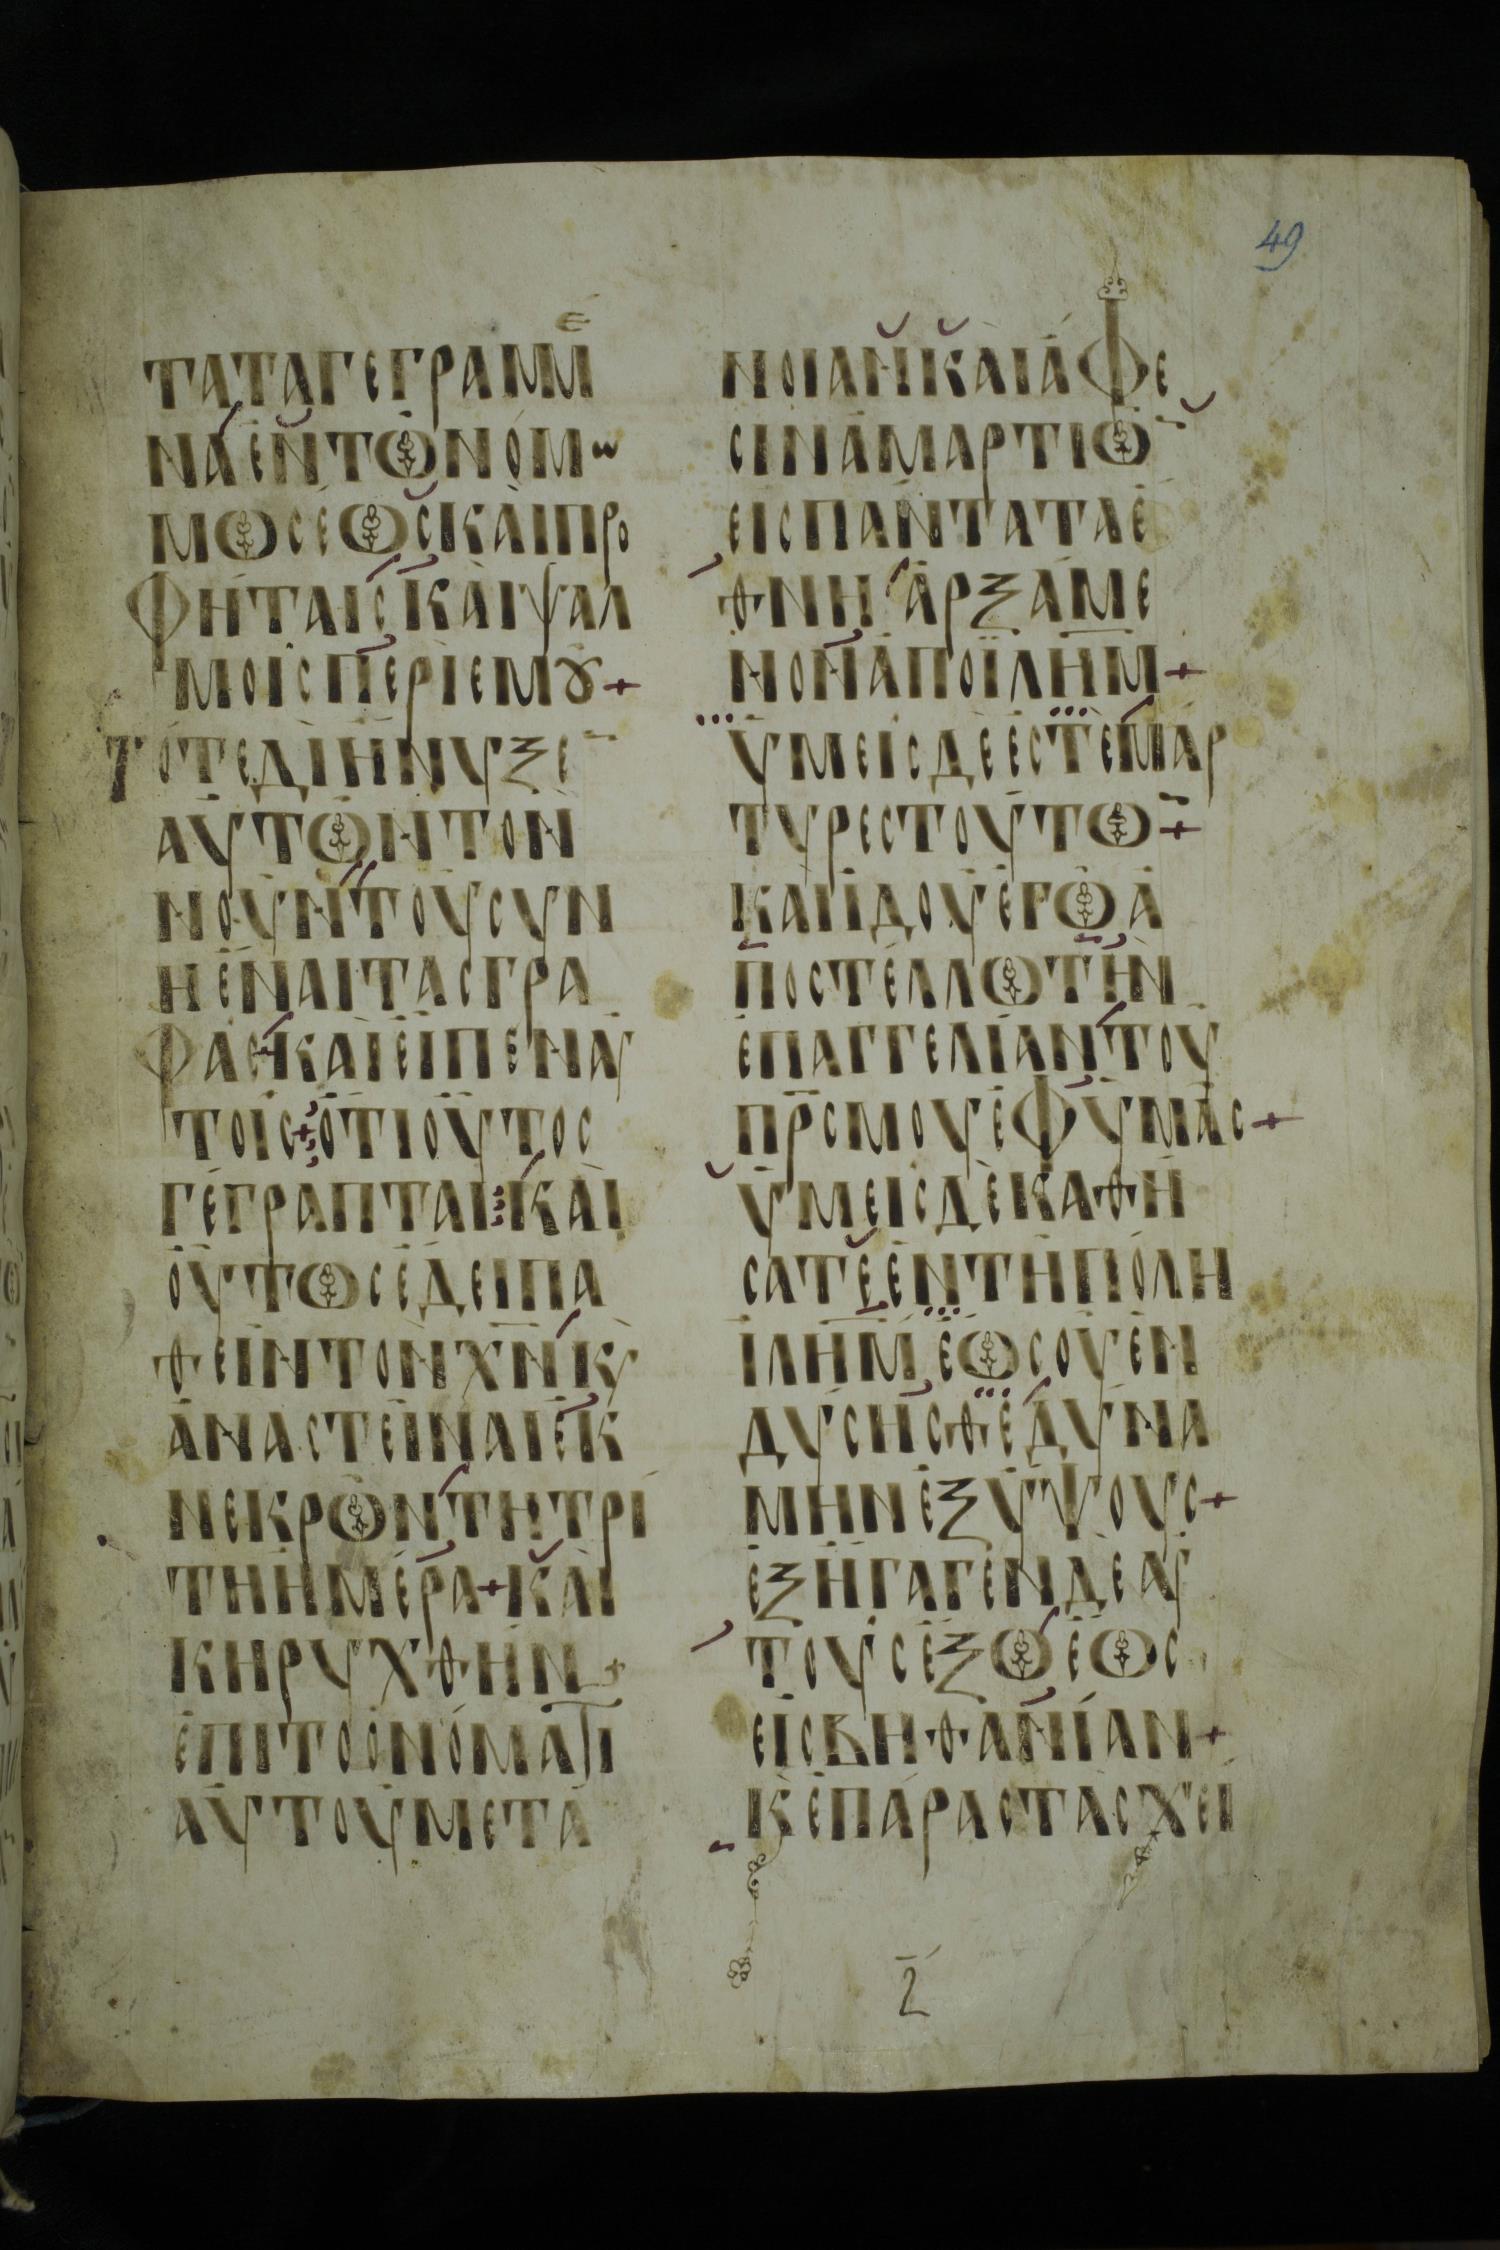 49
ΤΑΤΑΓΕΓΡΑΜΜΈ
ΝΑ ἘΝΤΩΝΟΜω
ΜΩΣΕΩΣΚΑΙΠΡΟ
ΦΗΤΑΙΣΚΑΙΨΑΛ
ΜΟΙΣΠΕΡΙΕΜΟΥ+
ΤΟΤΕΔΙΗΝΥΞΕ ̅
ΑΥΤΩΝΤΟΝ
ΝΟΥΝΤΟΥΣΥΝ
ΗΕΝΑΙΤΑΣΓΡΑ
ΦΑΣΚΑΙΕΙΠΕΝΑΥ
ΤΟΙΣ+ΟΤΙΟΥΤΟΣ
ΓΕΓΡΑΠΤΑΙ ΚΑΙ
ΟΥΤΩΣΕΔΕΙΠΑ
ΘΕΙΝΤΟΝΧ̅Ν̅Κ̀
ΑΝΑΣΤΕΙΝΑΙΕΚ
ΝΕΚΡΩΝΤΗΤΡΙ
ΤΗΗΜΕΡΑ+ΚΑΙ
ΚΗΡΥΧΘΗΝ+
ΕΠΙΤΟΟΝΟΜΑΤΙ
ΑΥΤΟΥΜΕΤΑ
ΝΟΙΑΝΚΑΙΑΦΕ
ΣΙΝΑΜΑΡΤΙΩ ̅
ΕΙΣΠΑΝΤΑΤΑΕ
ΘΝΗ ΑΡΞΑΜΕ
ΝΟΝΑΠΟΪΛΗ̅Μ+
ΥΜΕΙΣΔΕΕΣΤΕΜΑΡ
ΤΥΡΕΣΤΟΥΤΩ ̅+
ΚΑΙΙΔΟΥΕΓΩΑ
ΠΟΣΤΕΛΛΩΤΗΝ
ΕΠΑΓΓΕΛΙΑΝΤΟΥ
Π̅Ρ̅Σ̅ΜΟΥΕΦΥΜΑΣ+
ΥΜΕΙΣΔΕΚΑΘΗ
ΣΑΤΕΕΝΤΗΠΟΛΗ
ΙΛΗ̅Μ ΕΩΣΟΥΕΝ
ΔΥΣΗΣΘΕΔΥΝΑ
ΜΗΝΕΞΥΨΟΥΣ+
ΕΞΗΓΑΓΕΝΔΕΑΥ
ΤΟΥΣΕΞΩΕΩΣ
ΕΙΣΒΗΘΑΝΙΑΝ+
Κ̀ΕΠΑΡΑΣΤΑΣΧΕΙ